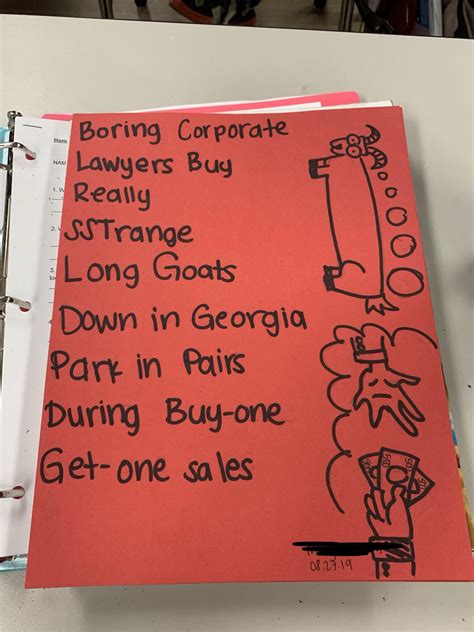 Boring Corporate
Lawyers Buy
Really
SSTrange
Long Goats
Down in Georgia
Park in Pairs
During Buy-one
Get-one sales
08.27.19
Item
NAM